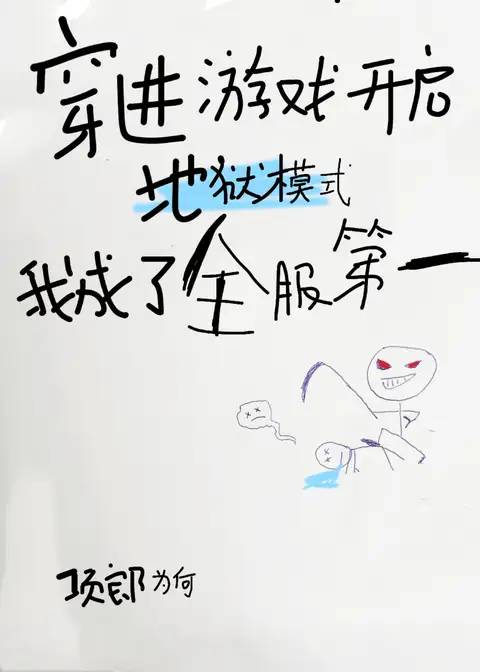 穿进游戏开启
地狱模式
我成了全服第一
项郎为何